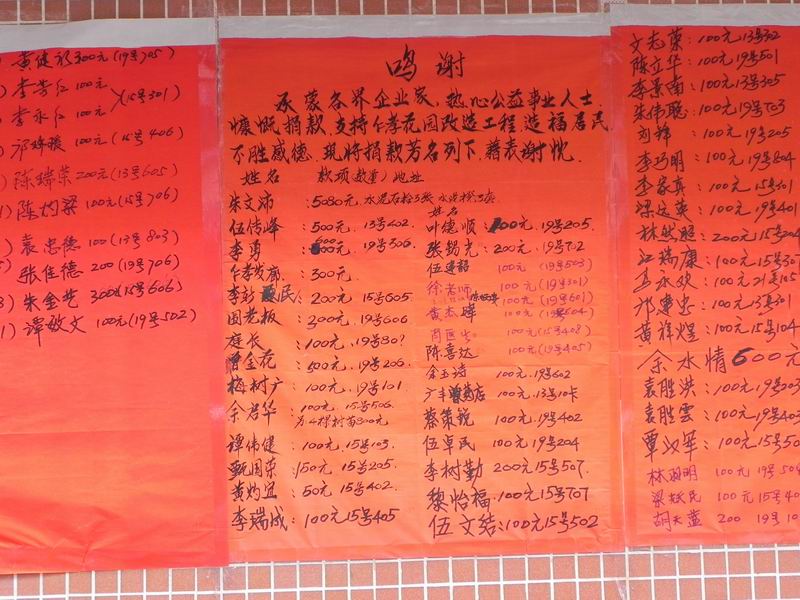 黄健 300元(19号705)
李芳仁 100元
李永仁 100元 (15号301)
邓 媛 100元(15号406)
陈瑞荣 200元(13号605)
陈灼梁 100元(15号706)
袁忠德 100(13号803)
张佳德 200(19号706)
朱金 300(15号606)
谭敏文 100元(19号502)
鸣谢
承蒙各界企业家、热心公益事业人士、
慷慨捐款、支持仁孝花园改造工程、造福居民
不胜感德、现将捐款芳名列下、藉表谢忱、
姓名 款项(数量)地址
朱文沛 :5080元、水泥石粉3张
伍传峰 :500元、13号402、
李勇 600元、19号306、
仁孝发廊 :300元、
李彭 民:200元 15号605
周老板 :200元、19号606
程长 :100元、19号80?
曾金花 :500元、19号206、
梅树广 :100元、19号101、
余君华 :100元、15号506、
为4棵树苗800元
谭伟健 :100元、15号103、
甄国荣 :150元、15号205、
黄灼宜 :50元、15号402、
李瑞成:100元15号405
姓名
叶德顺:100元、19号205、
张锡光:200元、19号702
伍 100元 (19号503)
徐老师 100元 (19号301)
100元 (19号601)
黄杰辉 100元 (19号504)
100元(15号408)
陈喜达 100元(19号405)
余玉诗 100元、19号602
广丰 药店 100元、13号10卡
蔡策锐 100元、19号402
伍卓民 100元、19号204
李树勤 200元15号507、
黎怡福、100元15号707
伍文结:100元15号502
文志荣:100元13号302
陈立华:100元19号501
李景南:100元13号305
朱伟聪:100元19号703
刘锋 :100元19号205
李巧明:100元19号804
李家真:100元15号301
梁运英:100元19号401
林然照:200元15号204
江瑞康:100元15号30
马永欢:100元21号105
邓惠忠:100元13号301
黄祥煜:100元15号104
余水情600元
袁胜洪:100元19号903
袁胜云:100元19号403
覃 军:100元15号50
林淑明 100元 19号504
梁 民 100元 15号40
胡天蓝 200 19号10